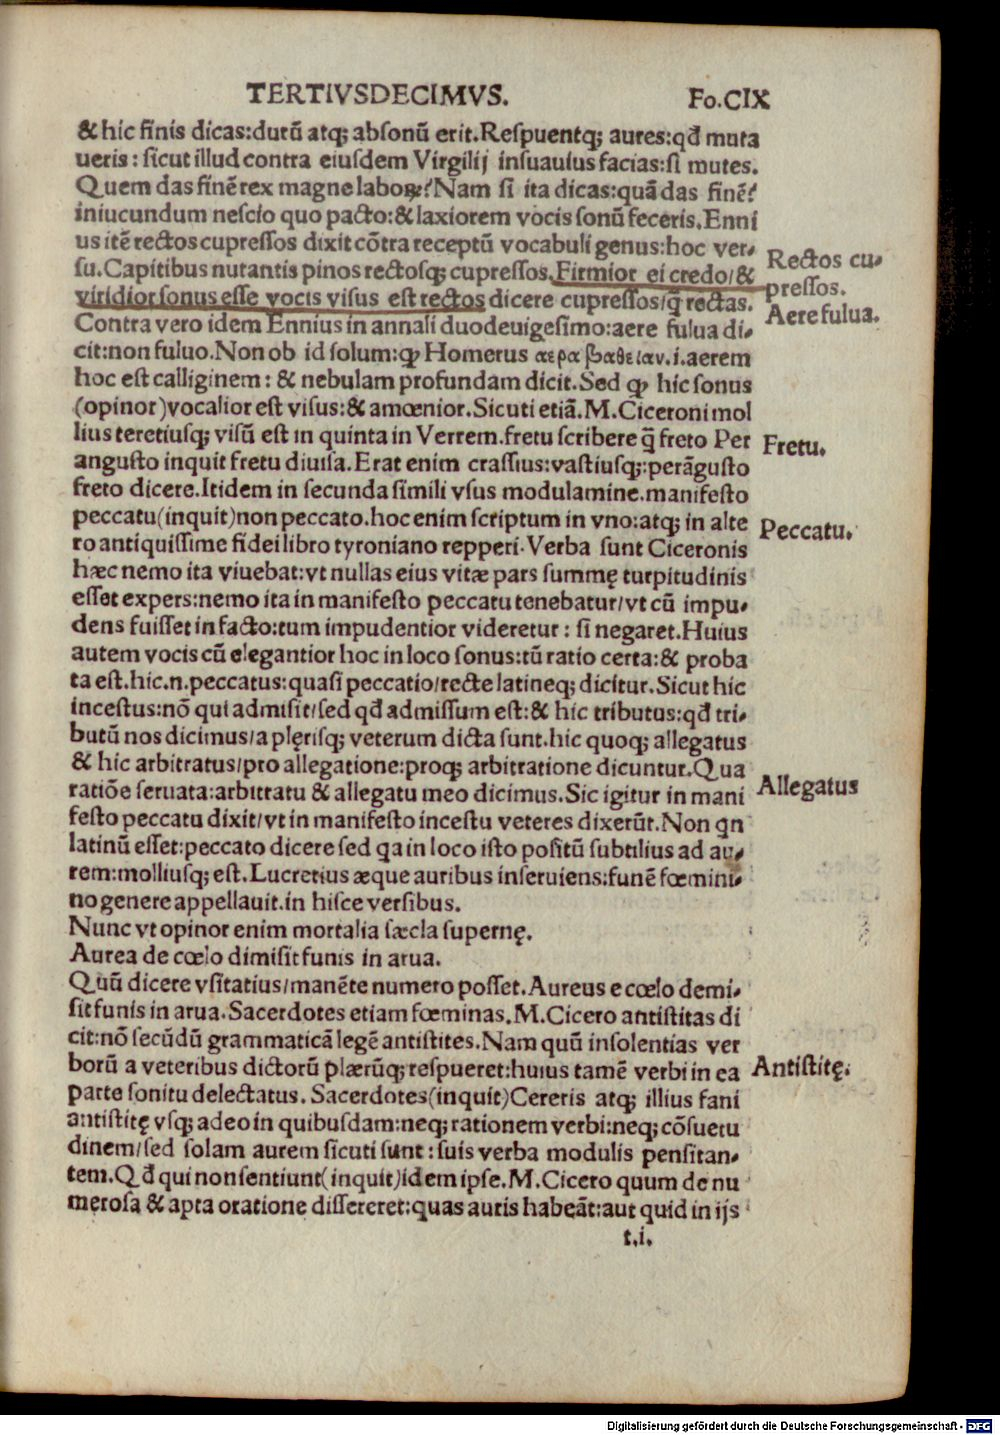 TERTIVSDECIMVS. Fo.CIX
& hic finis dicas:durū atq; absonū erit.Respuentq; aures:qđ muta
ueris: sicut illud contra eiusdem Virgilij insuauius facias:si mutes.
Quem das finē rex magne laboꝝ?Nam si ita dicas:quā das finē?
iniucundum nescio quo pacto:& laxiorem vocis sonū feceris.Enni
us itē rectos cupressos dixit cōtra receptū vocabuli genus:hoc ver-
su.Capitibus nutantis pinos rectosq; cupressos.Firmior ei credo/&
viridior sonus esse vocis visus est rectos dicere cupressos/q̄ rectas.
Contra vero idem Ennius in annali duodeuigesimo:aere fulua di-
cit:non fuluo.Non ob id solum:ꝙ Homerus αερα βαθειαν.i.aerem
hoc est calliginem: & nebulam profundam dicit.Sed ꝙ hic sonus
(opinor)vocalior est visus:& amœnior.Sicuti etiā.M.Ciceroni mol
lius teretiusq; visū est in quinta in Verrem.fretu scribere q̄ freto Per
angusto inquit fretu diuisa.Erat enim crassius:vastiusq;:perāgusto
freto dicere.Itidem in secunda simili vsus modulamine.manifesto
peccatu(inquit)non peccato.hoc enim scriptum in vno:atq; in alte
ro antiquissime fidei libro tyroniano repperi.Verba sunt Ciceronis
hæc nemo ita viuebat:vt nullas eius vitæ pars summę turpitudinis
esset expers:nemo ita in manifesto peccatu tenebatur/vt cū impu-
dens fuisset in facto:tum impudentior videretur: si negaret.Huius
autem vocis cū elegantior hoc in loco sonus:tū ratio certa:& proba
ta est.hic.n.peccatus:quasi peccatio/recte latineq; dicitur.Sicut hic
incestus:nō qui admisit/sed qđ admissum est:& hic tributus:qđ tri-
butū nos dicimus/a plęrisq; veterum dicta sunt.hic quoq; allegatus
& hic arbitratus/pro allegatione:proq; arbitratione dicuntur.Qua
ratiōe seruata:arbitratu & allegatu meo dicimus.Sic igitur in mani
festo peccatu dixit/vt in manifesto incestu veteres dixerūt.Non qn
latinū esset:peccato dicere sed qa in loco isto positū subtilius ad au-
rem:molliusq; est.Lucretius æque auribus inseruiens:funē fœmini-
no genere appellauit.in hisce versibus.
Nunc vt opinor enim mortalia sæcla supernę.
Aurea de cœlo dimisit funis in arua.
Quū dicere vsitatius/manēte numero posset.Aureus e cœlo demi-
sit funis in arua.Sacerdotes etiam fœminas.M.Cicero antistitas di
cit:nō secūdū grammaticā legē antistites.Nam quū insolentias ver
borū a veteribus dictorū plærūq; respueret:huius tamē verbi in ea
parte sonitu delectatus. Sacerdotes(inquit)Cereris atq; illius fani
antistitę vsq; adeo in quibusdam:neq; rationem verbi:neq; cōsuetu
dinem/sed solam aurem sicuti sunt: suis verba modulis pensitan-
tem.Qđ qui non sentiunt(inquit)idem ipse.M.Cicero quum de nu
merosa & apta oratione dissereret:quas auris habeāt:aut quid in ijs
t.i.
Rectos cu-
pressos.
Aere fulua.
Fretu.
Peccatu.
Allegatus
Antistitę.
Digitalisierung gefördert durch die Deutsche Forschungsgemeinschaft - DFG